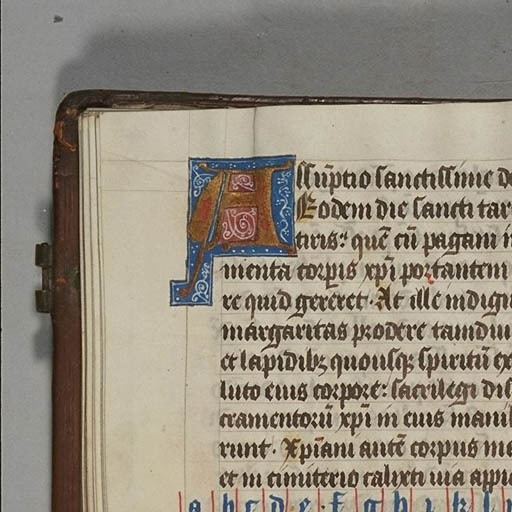 Assūptio sanctissime de
Eodem die sancti tar
tiris: quē cū pagani in
menta corpis xpi portantem
re quid gereret. At ille indign
margaritas prodere tamdiu
et lapidibꝫ quousqꝫ spiritū ex
luto eius corpore: sacrilegi dis
cramentorū xpi in eius mani
runt. Xpiani autē corpus ma
et in cimiterio calixti uia appi
a b c d e f g h i k l